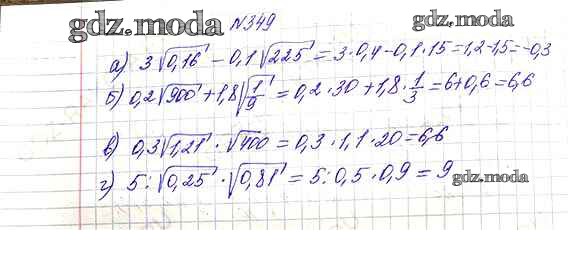 gdz.moda №349 gdz.moda
а) 3√0,16 − 0,1√225 = 3·0,4 − 0,1·15 = 1,2 − 1,5 = −0,3
б) 0,2√900 + 1,8√1/9 = 0,2·30 + 1,8·1/3 = 6 + 0,6 = 6,6
в) 0,3√1,21 · √400 = 0,3·1,1·20 = 6,6
г) 5:√0,25 · √0,81 = 5:0,5·0,9 = 9 gdz.moda